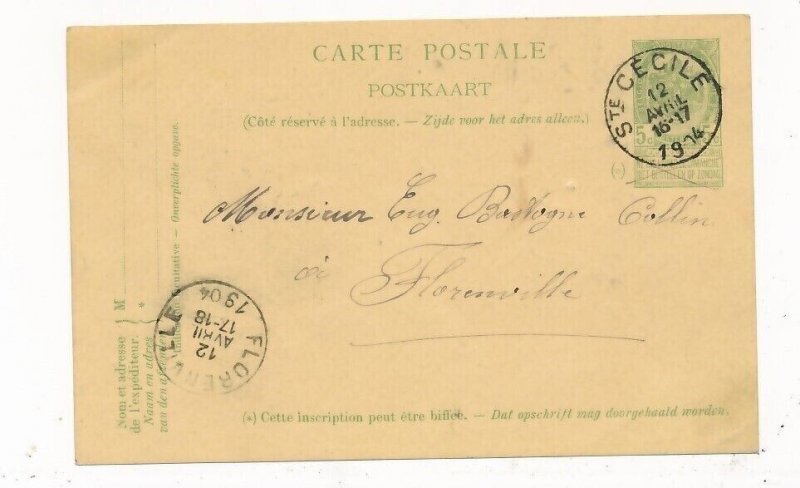 CARTE POSTALE
POSTKAART
(Côté réservé à l'adresse. — Zijde voor het adres alleen.)
STE CECILE
12
AVRIL
16-17
1904
5c
NIET BESTELLEN OP ZONDAG
(*)
Monsieur Eug. Bastogne Collin
à
Florenville
FLORENVILLE
12
AVRIL
17-18
1904
M
*
Nom et adresse
de l'expéditeur.
Naam en adres
van den afzender
Indication facultative — Onverplichte opgave.
(*) Cette inscription peut être biffée. — Dat opschrift mag doorgehaald worden.